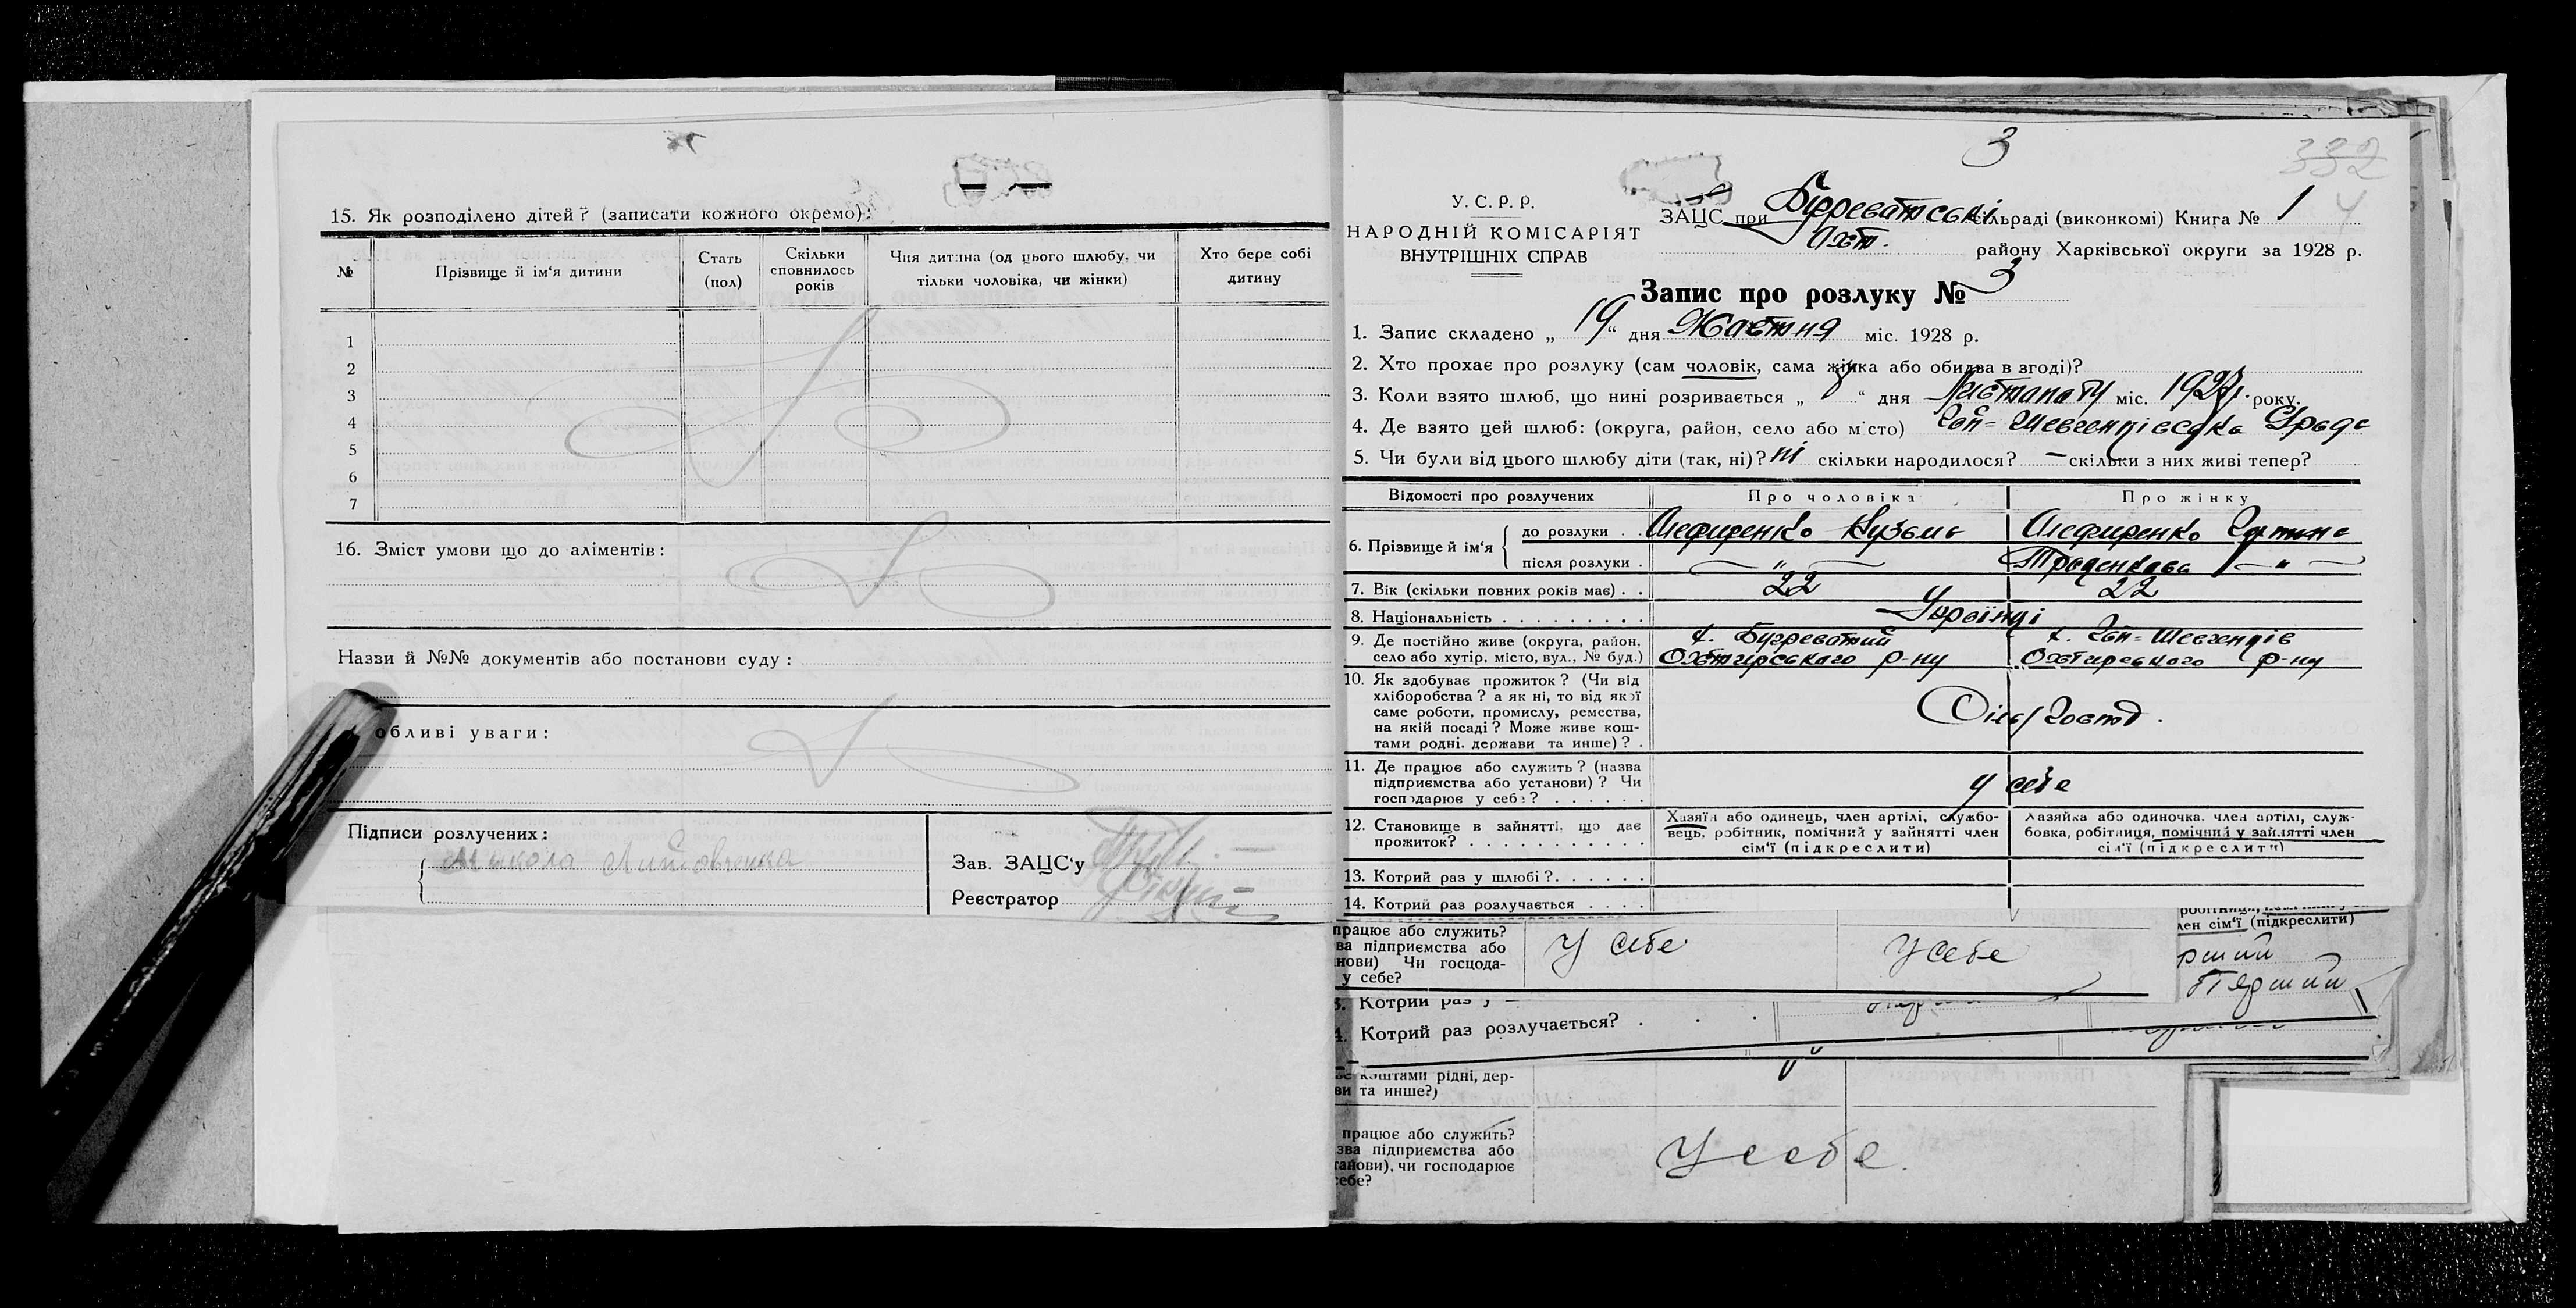 15. Як розподілено дітей? (записати кожного окремо):
№ Прізвище й ім'я дитини Стать (пол) Скільки сповнилось років Чия дитина (од цього шлюбу, чи тільки чоловіка, чи жінки) Хто бере собі дитину
1
2
3
4
5
6
7
16. Зміст умови що до аліментів:
Назви й №№ документів або постанови суду:
обливі уваги:
Підписи розлучених:
Микола Литовченко
Зав. ЗАЦС'у
Реєстратор
3
332
4
У.С.Р.Р.
НАРОДНІЙ КОМІСАРІЯТ
ВНУТРІШНІХ СПРАВ
ЗАЦС при Бугреватській сільраді (виконкомі) Книга № 1
Охт. району Харківської округи за 1928 р.
Запис про розлуку № 3
1. Запис складено „19“ дня Жовтня міс. 1928 р.
2. Хто прохає про розлуку (сам чоловік, сама жінка або обидва в згоді)?
3. Коли взято шлюб, що нині розривається „ “ дня Листопаду міс. 1927р. року.
4. Де взято цей шлюб: (округа, район, село або місто)
5. Чи були від цього шлюбу діти (так, ні)? ні скільки народилося? — скільки з них живі тепер?
Відомості про розлучених Про чоловіка Про жінку
6. Прізвище й ім'я
до розлуки . . Алефиренко Кузьма Алефиренко
після розлуки . — „ — — „ —
7. Вік (скільки повних років має) . . 22 22
8. Національність . . . . . . . . . Українці
9. Де постійно живе (округа, район, село або хутір, місто, вул., № буд.)
х. Бугреватий
Охтирського р-ну
Охтирського р-ну
10. Як здобуває прожиток? (Чи від
хліборобства? а як ні, то від якої
саме роботи, промислу, ремества,
на якій посаді? Може живе кош-
тами родні, держави та инше)? .
11. Де працює або служить? (назва
підприємства або установи)? Чи
господарює у себе? . . . . . .
у себе
12. Становище в зайнятті, що дає
прожиток? . . . . . . . . . . .
Хазяїн або одинець, член артілі, службо-
вець, робітник, помічний у зайнятті член
сім'ї (підкреслити)
Хазяйка або одиночка, член артілі, служ-
бовка, робітниця, помічний у зайнятті член
сім'ї (підкреслити)
13. Котрий раз у шлюбі?. . . . . .
14. Котрий раз розлучається . . . .
лен сім'ї (підкреслити)
працює або служить?
ва підприємства або
нови) Чи господа-
у себе?
у себе
у себе
рший
Перший
3. Котрий раз у
4. Котрий раз розлучається? . . .
коштами рідні, дер-
ви та инше?)
працює або служить?
зва підприємства або
танови), чи господарює
себе?
У себе.